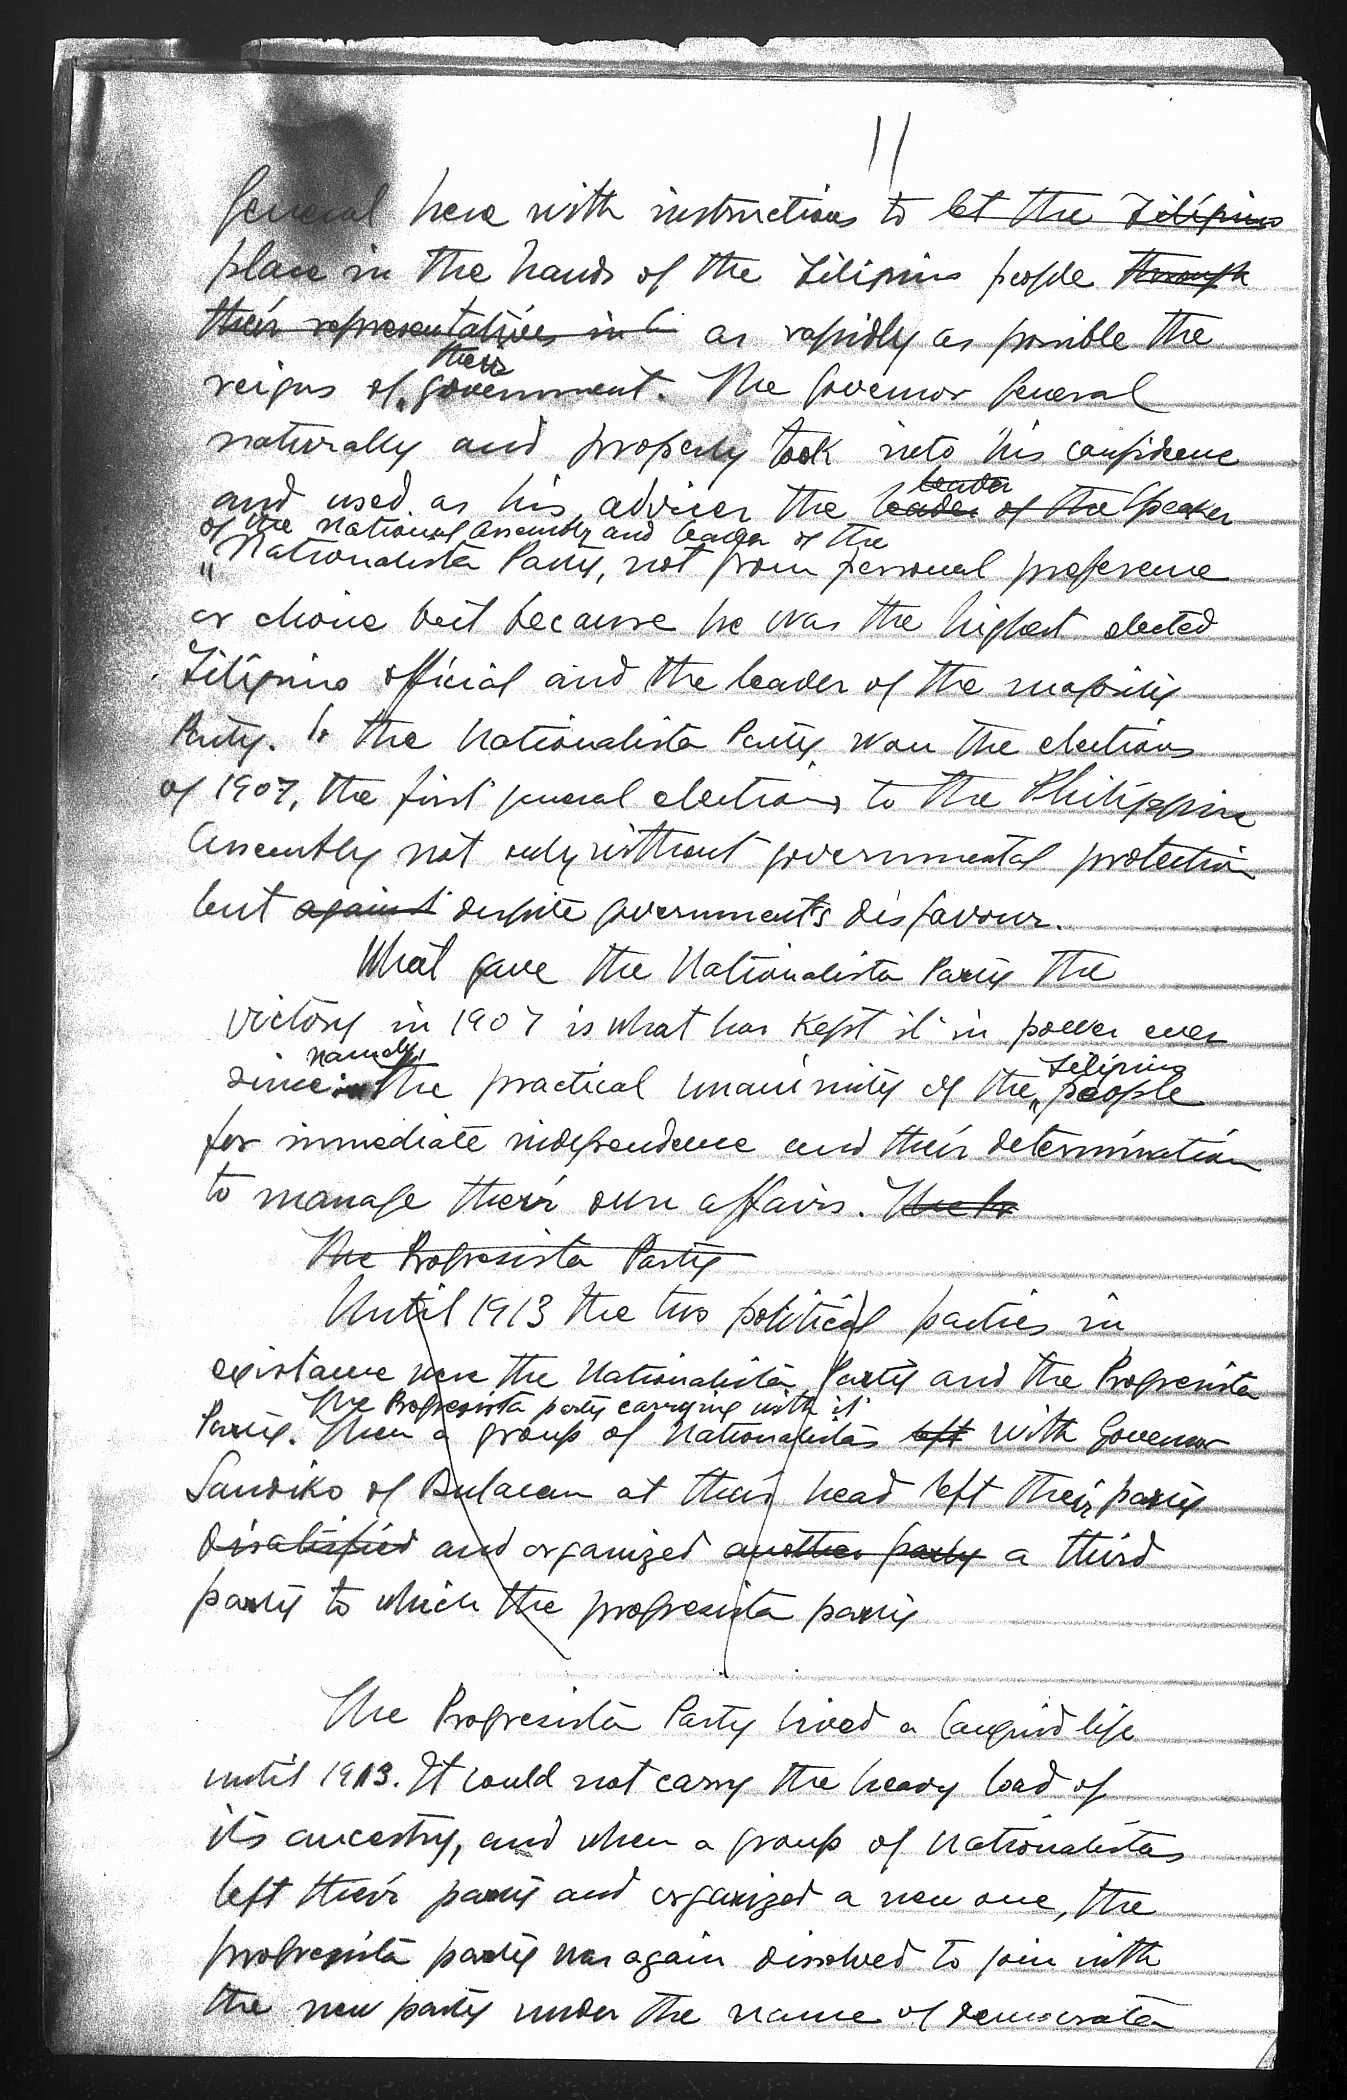 11
General here with instructions to let the Filipino
place in the hands of the Filipino people through
their representatives in as rapidly as possible the
reigns of their government. The Governor General
naturally and properly took into his confidence
and used as his adviser the leader leader of the Speaker
of the National Assembly and leader of the
Nationalista Party, not from personal preference
or choice but because he was the highest elected
Filipino official and the leader of the majority
Party. the Nationalista Party won the elections
of 1907, the first general elections to the Philippine
Assembly not only without governmental protection
but against despite government's disfavour.
What gave the Nationalista Party the
victory in 1907 is what has kept it in power ever
since: namely, the practical unanimity of the Filipino people
for immediate independence and their determination
to manage their own affairs.
The Progresista Party
Until 1913 the two political parties in
existance were the Nationalista Party and the Progresista
The Progresista party carrying with it
Party. Then a group of Nationalistas left with Governor
Sandiko of Bulacan at their head left their party
disatisfied and organized another party a third
party to which the progresista party
The Progresista Party lived a languid life
until 1913. It could not carry the heavy load of
its ancestry, and when a group of Nationalistas
left their party and organized a new one, the
progresista party was again dissolved to join with
the new party under the name of democrata